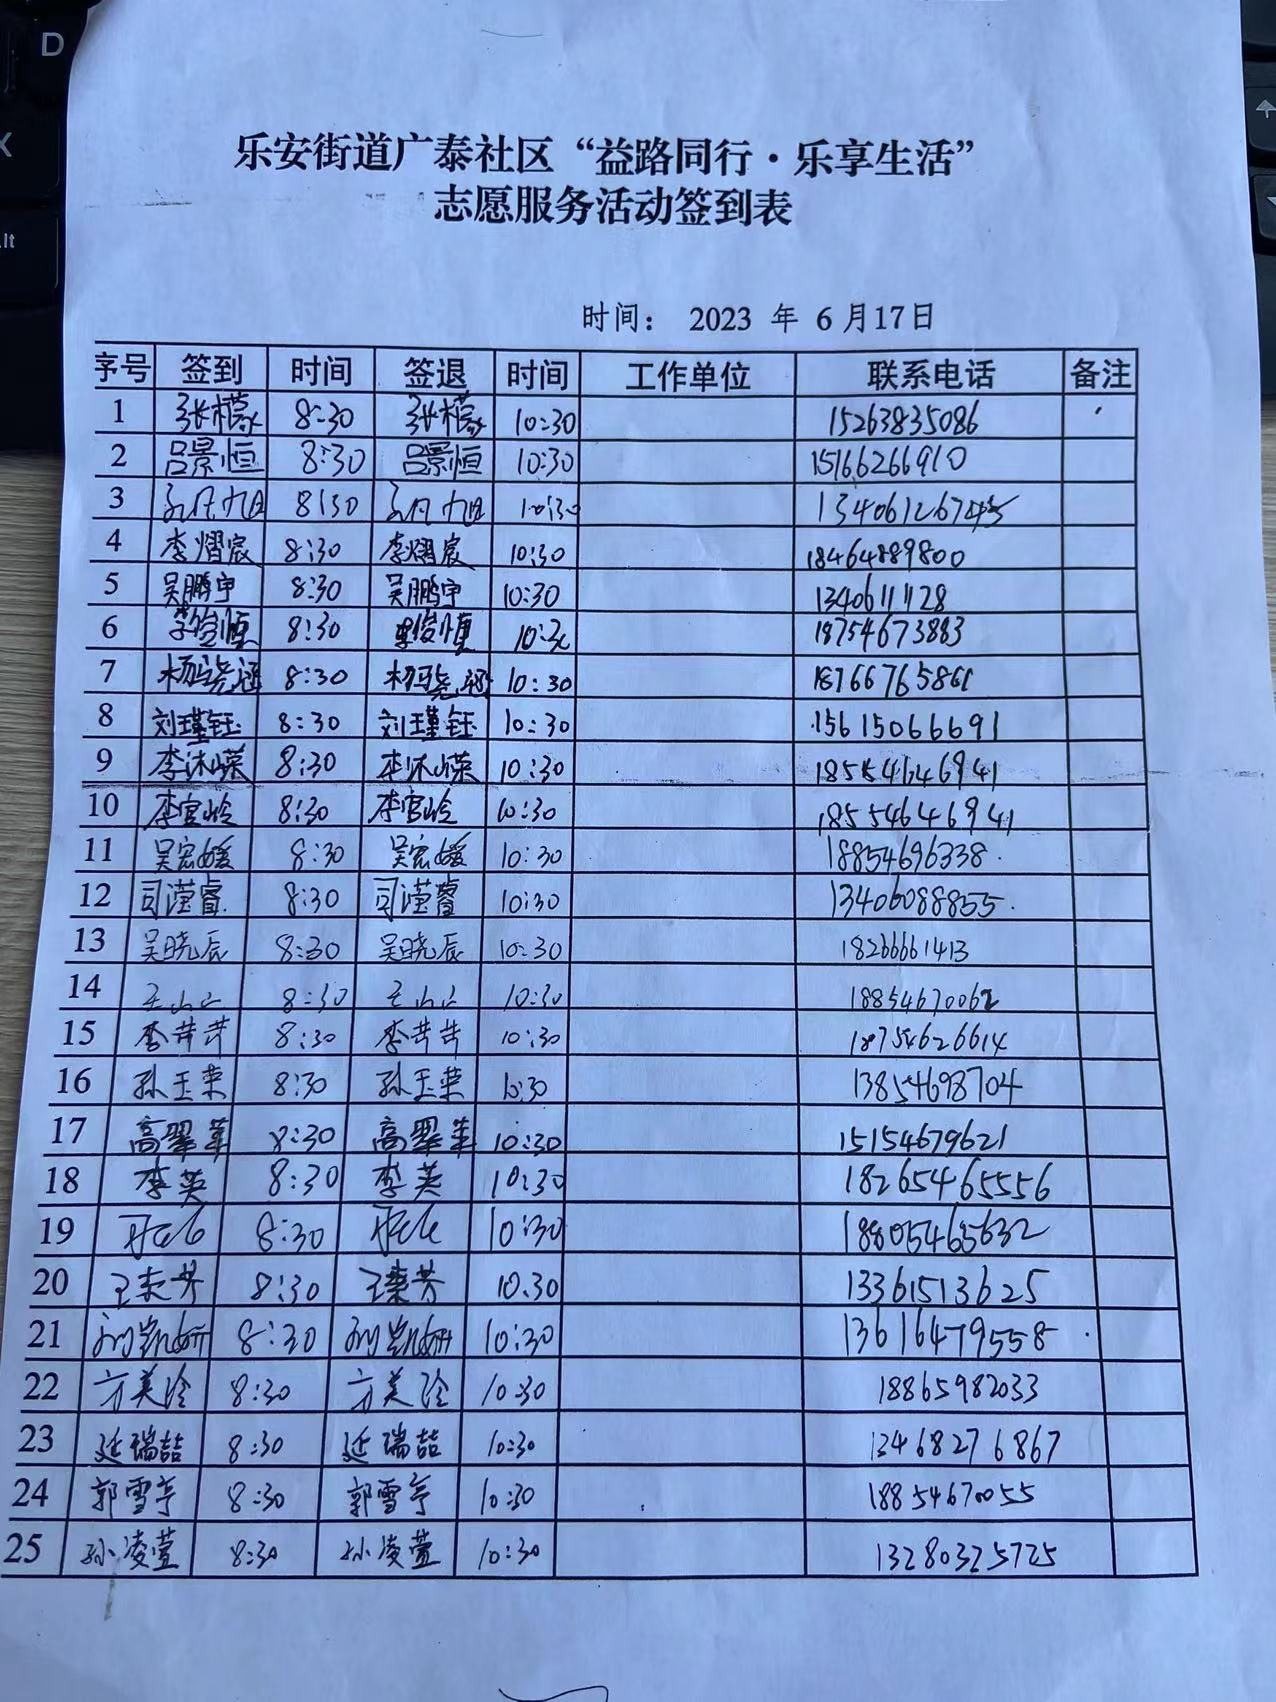 乐安街道广泰社区“益路同行·乐享生活”
志愿服务活动签到表
时间： 2023 年 6月17日
序号 签到 时间 签退 时间 工作单位 联系电话 备注
1 张檬 8:30 张檬 10:30 15263835086
2 吕景恒 8:30 吕景恒 10:30 15166266910
3 8:30 10:30
4 李熠宸 8:30 李熠宸 10:30 18464889800
5 吴鹏宇 8:30 吴鹏宇 10:30 1340611128
6 8:30 10:30 18754673883
7 杨骁涵 8:30 杨骁涵 10:30 18766765861
8 刘瑾钰 8:30 刘瑾钰 10:30 15615066691
9 李沐嵘 8:30 李沐嵘 10:30 18554646941
10 李官岭 8:30 李官岭 10:30 18554646941
11 吴宏媛 8:30 吴宏媛 10:30 18854696338
12 司滢睿 8:30 司滢睿 10:30 13406088855
13 吴晓辰 8:30 吴晓辰 10:30 18266661413
14 8:30 10:30 18854670062
15 李芹芹 8:30 李芹芹 10:30 18754626614
16 孙玉荣 8:30 孙玉荣 10:30 13854698704
17 高翠华 8:30 高翠华 10:30 15154679621
18 李英 8:30 李英 10:30 18265465556
19 8:30 10:30 18805465632
20 王荣芳 8:30 王荣芳 10.30 13361513625
21 刘凯妍 8:30 刘凯妍 10:30 13616479558
22 方美玲 8:30 方美玲 10:30 18865982033
23 延瑞喆 8:30 延瑞喆 10:30 13468276867
24 郭雪亭 8:30 郭雪亭 10:30 18854670055
25 孙凌萱 8:30 孙凌萱 10:30 13280325725